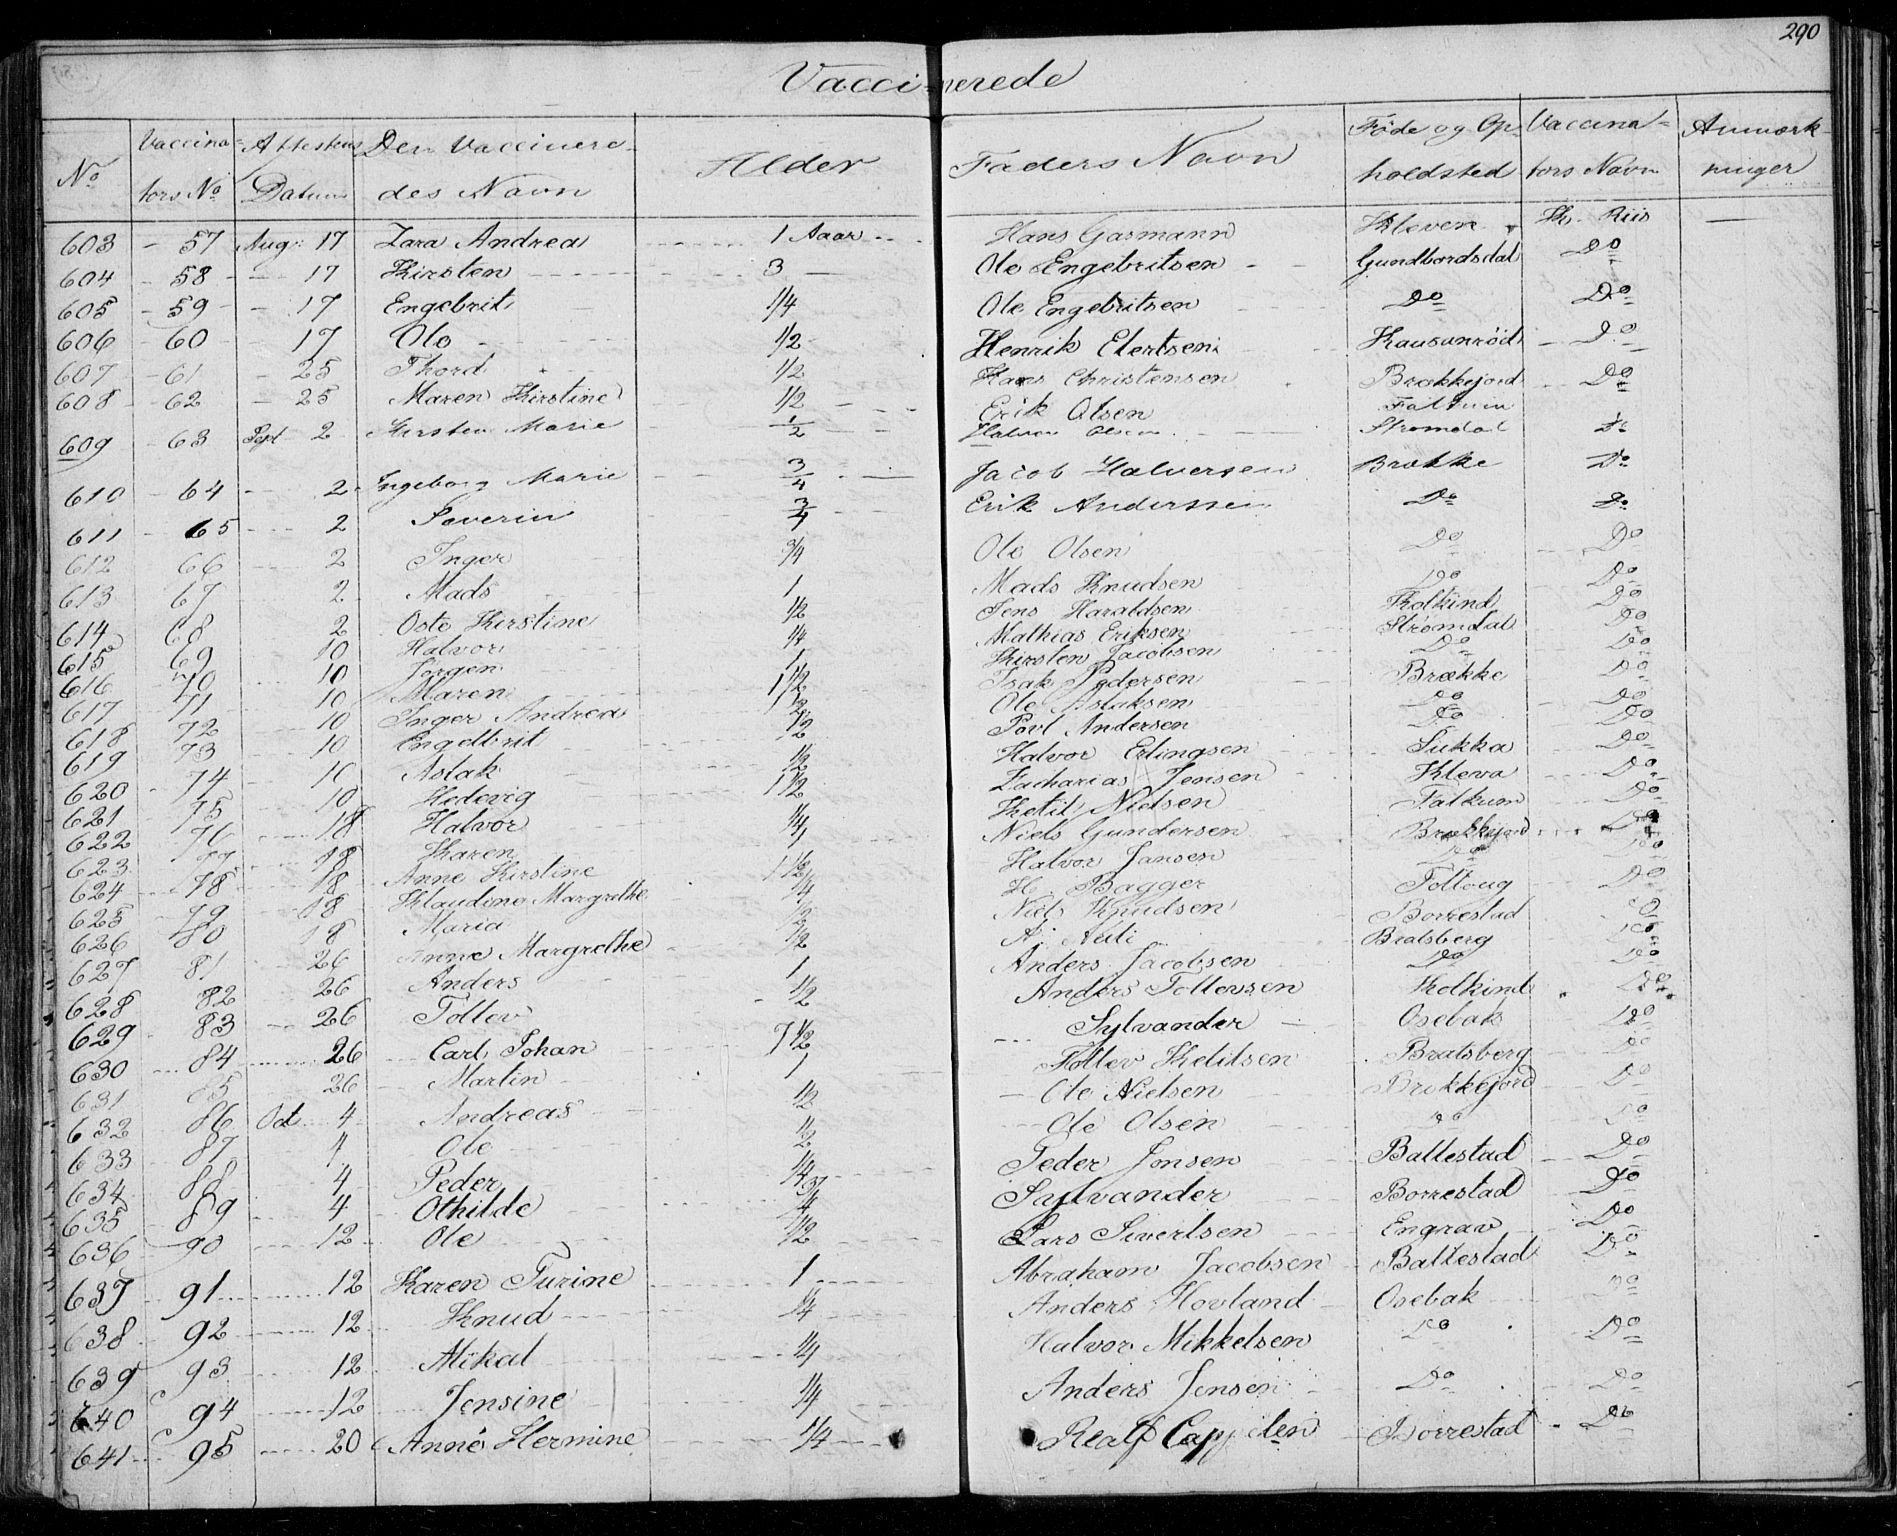 290
Vaccinerede
No Vaccinators No Attestens Datum Den Vaccineredes Navn Alder Faders Navn Føde og Opholdsted Vaccinators Navn Anmærkninger
603 57 Aug: 17 Zara Andrea 1 Aaar Hans Gasmann Kleven Th. Riis
604 58 17 Kirsten 3 Ole Engebritsen Gundbordsdal Do
605 59 17 Engebrit 1/4 Ole Engebritsen Do Do
606 60 17 Ole 1/2 Henrik Elertsen Do
607 61 25 Thord 1/2 Hans Christensen Brækkejord Do
608 62 25 Maren Kirstine 1/2 Erik Olsen Falkum
609 63 Sept 2 Kirsten Marie 1/2 Halvor Olsen Stromdal Do
610 64 2 Ingeborg Marie 3/4 Jacob Halversen Brække Do
611 65 2 Severin 3/4 Erik Anderssen Do Do
612 66 2 Inger 3/4 Ole Olsen Do Do
613 67 2 Mads 1 Mads Knudsen Do Do
614 68 2 Oste Kirstine 1/2 Jens Haraldsen Kolkind Do
615 69 10 Halvor 1/4 Mathias Eriksen Strømdal Do
616 70 10 Jørgen 1 Kirsten Jacobsen Do Do
617 71 10 Maren 1 1/2 Isak Pedersen Brække Do
618 72 10 Inger Andrea 1/2 Ole Aslaksen Do Do
619 73 10 Engelbrit 1/2 Povl Andersen Do Do
620 74 10 Aslak 1/2 Halvor Erlingsen Sukka Do
621 75 10 Hedevig 1 1/2 Zacharias Jensen Kleva Do
622 76 18 Halvor 1/4 Ketil Nielsen Falkum Do
623 77 18 Karen 1 Niels Gundersen Brækkejord Do
624 78 18 Anne Kirstine 1 1/2 Halvor Jansen Do Do
625 79 18 Klaudine Margrethe 1/4 H. Bagger Follaug Do
626 80 18 Maria 1/2 Niels Knudsen Borrestad Do
627 81 26 Anne Margrethe 1/2 A. Bratsberg Do
628 82 26 Anders 1 Anders Jacobsen Do Do
629 83 26 Tollev 1/2 Anders Tollevsen Kolkind Do
630 84 26 Carl Johan 7 1/2 Sylvander Osebak Do
631 85 26 Martin 1 Tollev Ketilsen Bratsberg Do
632 86 Oct 4 Andreas 1/2 Ole Nielsen Brekkejord Do
633 87 4 Ole 1/2 Ole Olsen Do Do
634 88 4 Peder 1/4 Peder Jonsen Ballestad Do
635 89 4 Othilde 3/4 Sylvander Borrestad Do
636 90 12 Ole 1/2 Lars Sivertsen Engrav Do
637 91 12 Karen Turine 1 Abraham Jacobsen Ballestad Do
638 92 12 Knud 1/4 Anders Hovland Osebak Do
639 93 12 Mikal 1/4 Halvor Mikkelsen Do Do
640 94 12 Jensine 1/4 Anders Jensen Do Do
641 95 20 Anne Hermine 1/4 Realf Cappelen Borrestad Do